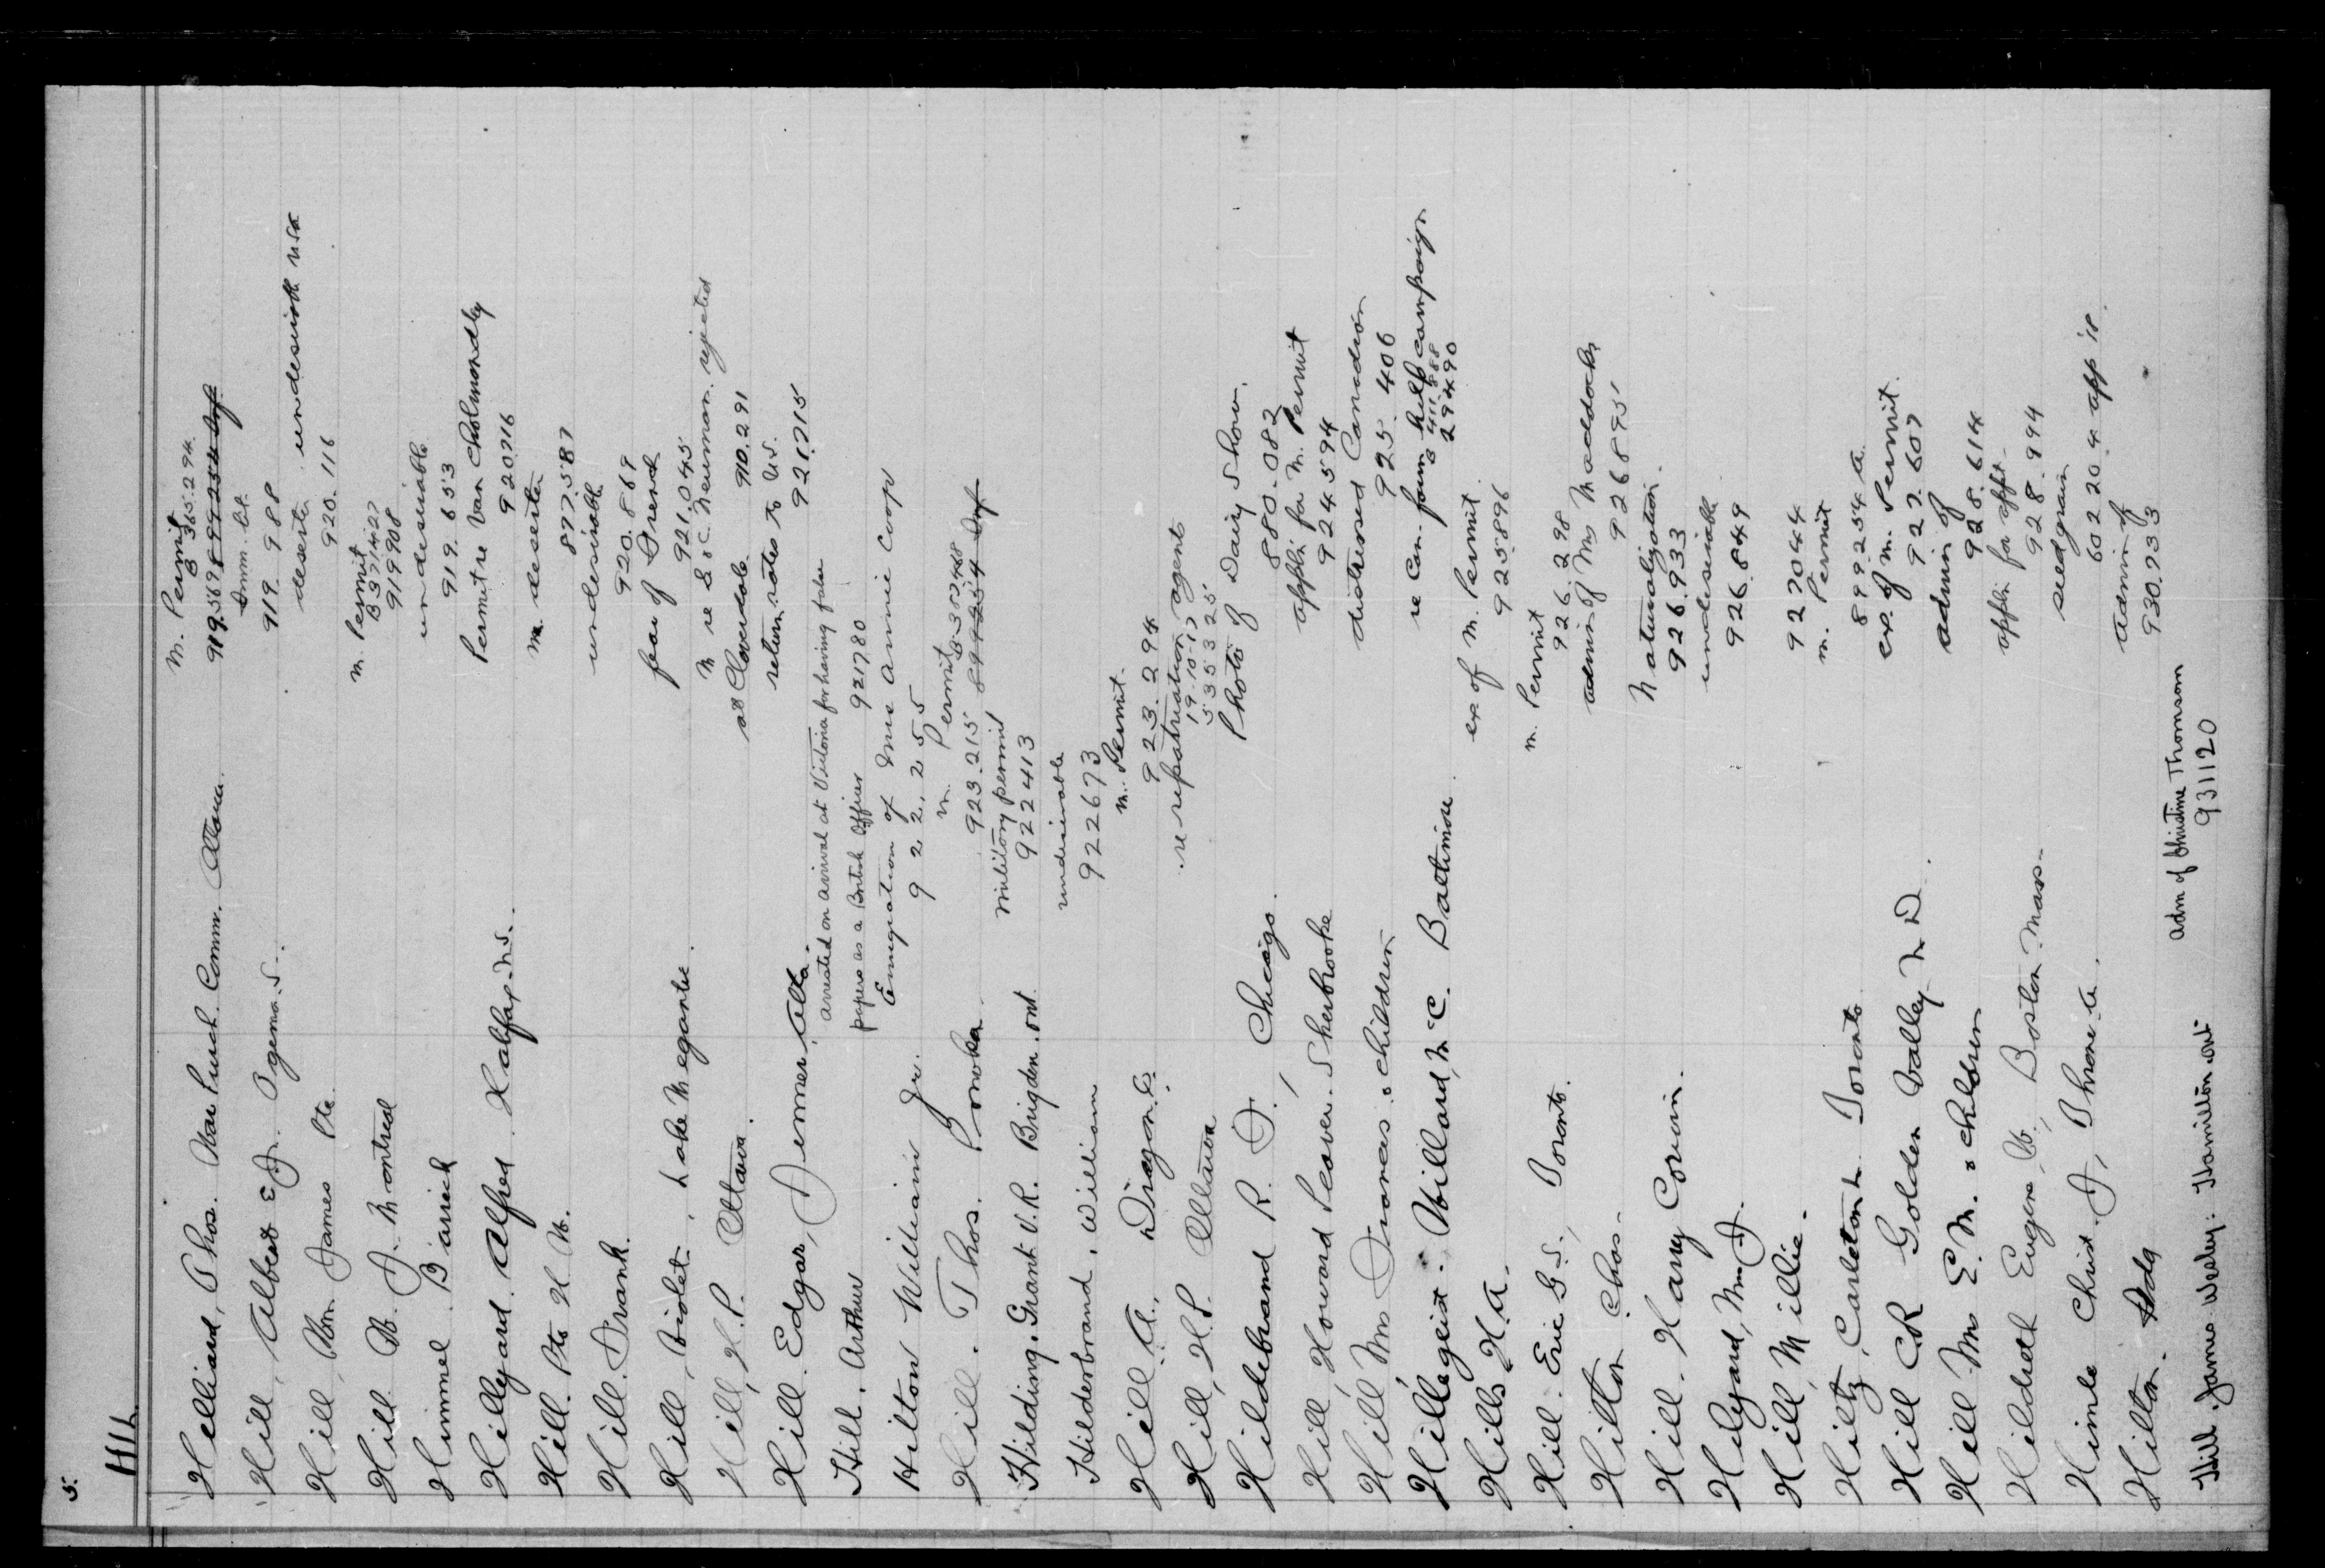 5.
HIL
Hilliard, Thos. War Purch. Comm. Ottawa.
M. Permit
B 365294
919.569 899254 Imf
Imm. Br.
Hill, Albert E. J. Ogema. S.
919.988
Hill, Wm. James Pte.
deserter undesirable USA
920.116
Hill W. J. Montreal
M. Permit
B 371427
919908
Himmel Barrich
undesirable
919.653
Hillyard. Alfred Halifax. N.S.
Permit re Van Cholmondly
920716
Hill. Pte H W.
M. deserter
877587
Hill. Frank.
undesirable
920.869
Hill, Violet, Lake Megantic.
fear of French
921.045
Hill, H. P. Ottawa.
M re S. & C. Neuman. rejected
at Cloverdale 910.291
Hill. Edgar, Turner, Alta.
return rates to U.S.
921715
Hill. Arthur
arrested on arrival at Victoria for having false
papers as a British Officer 921780
Hilton William Jr.
Emigration of Mrs Annie Coop
922,255
Hill. Thos. Ponoka.
M. Permit B 382448
923.215 899254 Imf
Hilding. Grant V.R. Brigden. Ont.
Military permit
922413
Hilderbrand. William
undesirable
922673
Hill A., Dixon. C.
M. Permit.
923.294
Hill, H. P. Ottawa
re repatriation agents
19-10-17
535325
Hildebrand R. J., Chicago.
Photo of Dairy Show.
880.082
Hill, Howard Leaver. Sherbrooke
applic for M. Permit
924594
Hill Mrs Frances & children
distressed Canadian
925.406
Hillegeist. Willard, Mc C. Baltimore.
re Can. farm help campaign
B 411888
294490
Hills H. A.
ex of M. Permit.
925896
Hill. Eric G. S., Toronto.
M. Permit
926.298
Hilton Chas.
admin of Mrs Maddocks
926895
Hill. Harry Corwin.
Naturalization.
926.933
Hilyard, Mrs J.
undesirable
926.849
Hill, Millie.
927044
Hiltz, Carleton L. Toronto
M. Permit
899254 A.
Hill C R Golden Valley N D.
ex. of M. Permit.
927.607
Hill Mrs E. M. & children
admin of
928.614
Hildreth Eugene W., Boston Mass.
applic for appt.
928.994
Himle Christ. J, Throne A.
seedgrain
602204 app 18.
Hilton. Ada
admin of
930.733
Hill. James Wesley. Hamilton Ont
adm of Christine Thomson
931120